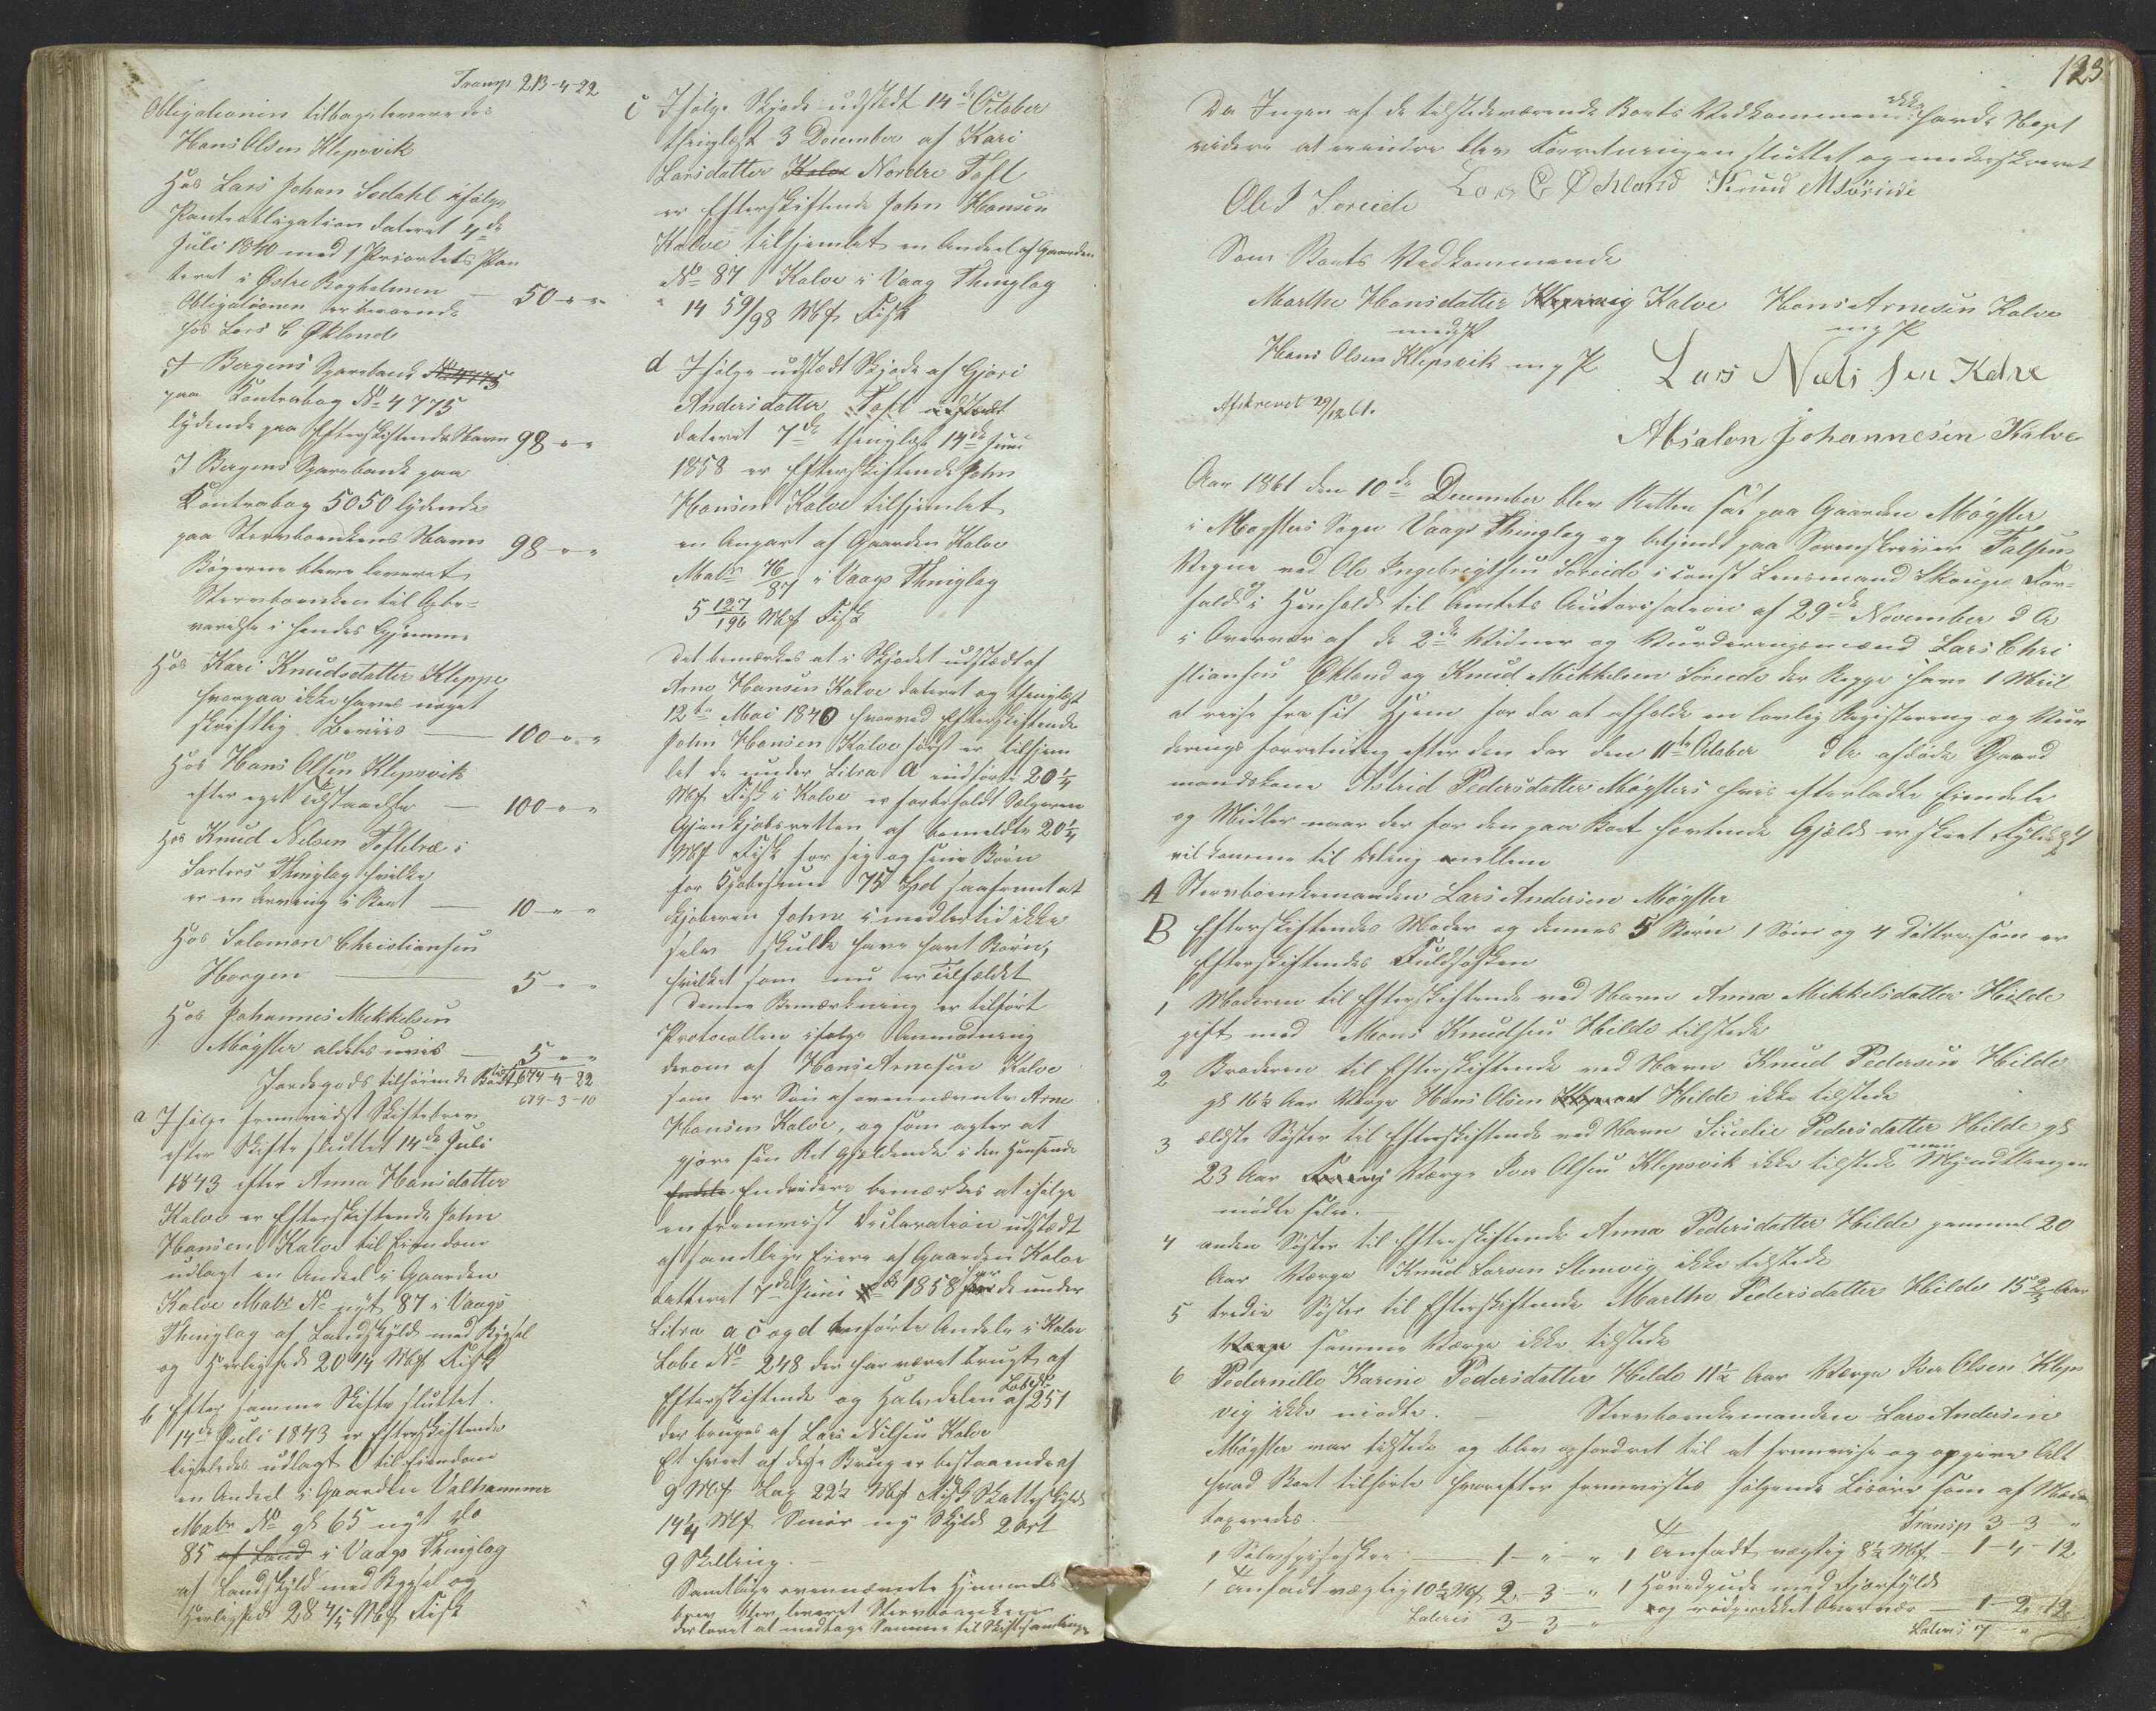 Transp 213-4-22
Obligationen tilbageleveredes
Hans Olsen Klepsvik
Hos Lars Johan Sedahl ifølge
Pantobligation dateret 4de
Juli 1840 med 1 Prioritets Pan
teret i Østre Rogholmen — 50 - " - "
Obligationen er beroende
hos Lars C Økland
I Bergens Sparebank No 4775
paa Contrabog No 4775
lydende paa Efterskiftendes Navn 98 - " - "
I Bergens Sparebank paa
Contrabog 5050 lydende
paa Stervboenkens Navn 98 - " - "
Bøgerne bleve leveret
Stervboenken til Opbe=
varelse i hendes Gjemme
Hos Kari Knudsdatter Kleppe
hvorpaa ikke haves noget
skriftlig Beviis — 100 - " - "
Hos Hans Olsen Klepsvik
efter eget Tilstaaelse — 100 - " - "
Hos Knud Nilsen Toftebræ i
Sartors Thinglag hvilke
er en Arving i Boet — 10 - " - "
Hos Salomon Christiansen
Horgen — 5 - " - "
Hos Johannes Mikkelsen
Møgster aldeles uvis — 5 - " - "
Jordegods tilhørende Boet 679-4-22
679-3-10
a Ifølge fremviist Skiftebrev
efter Skifte sluttet 14de Juli
1843 efter Anna Hansdatter
Kalve er Efterskiftende John
Hansen Kalve til Eiendom
udlagt en Andeel i Gaarden
Kalve Matr No nyt 87 i Vaags
Thinglag af Landskyld med Bygsel
og Herlighed 20 1/4 Mk Fisk
b Efter samme Skifte sluttet
14de Juli 1843 er Efterskiftende
ligeledes udlagt til Eiendom
en Andeel i Gaarden Valhammer
Matr No gl 65 nyt do
85 af Land i Vaags Thinglag
af Landskyld med Bygsel og
Herlighed 28 4/5 Mk Fisk
c Ifølge Skjøde udstedt 14de October
thinglæst 3 December af Kari
Larsdatter Kalve Nordre Toft
er Efterskiftende John Hansen
Kalve tilhjemlet en Andeel af Gaarden
No 87 Kalve i Vaag Thinglag
14 59/98 Mk Fisk
d Ifølge udstædt Skjøde af Gjøri
Andersdatter Toft udstædt
dateret 7de thinglæst 14de Juni
1858 er Efterskiftende John
Hansen Kalve tilhjemlet
en Anpart af Gaarden Kalve
Matr 76/87 i Vaags Thinglag
5 127/196 Mk Fisk
Det bemærkes at i Skjødet udstædt af
Arne Hansen Kalve dateret og thinglæst
12te Mai 1840 hvorved Efterskiftende
John Hansen Kalve først er tilhjem
let de under Litra a indførte 20 1/4
Mk Fisk i Kalve er forbeholdt Sælgeren
Gjenkjøbsretten af bemeldte 20 1/4
Mk Fisk for sig og sine Børn
for Kjøbesum 75 Spd saafremt at
Kjøberen John imidlertid ikke
selv skulde have havt Børn,
hvilket som nu er Tilfældet
Denne Bemærkning er tilført
Protocollen ifølge Anmodning
derom af Hans Arnesen Kalve
som er Søn af ovennævnte Arne
Hansen Kalve, og som agter at
gjøre sin Ret gjældende i den Henseende
Endele Endvidere bemærkes at ifølge
en fremviist Declaration udstædt
af samtlige Eiere af Gaarden Kalve
datteret 7de Juni 1858 har de under
Litra a c og d anførte Andele i Kalve
Løbe No 248 der har været brugt af
Efterskiftende og Halvdelen af Løbe No 251
der bruges af Lars Nilsen Kalve
Et hvert af disse Brug er bestaaende af
9 Mk Lax 22 1/2 Mk Fisk Skatteskyld
14 1/4 Mk Smør ny Skyld 2 ort
9 Skilling.
Samtlige ovennævnte Hjemmels
breve blev leveret Stervboenken
der lovet at medtage Samme til Skiftesamlingen
123
Da Ingen af de tilstedeværende Boets Vedkommende ikke havde Noget
videre at erindre blev Forretningen sluttet og underskrevet
Ole I Søreide Lars C Økland Knud M Søreide
Som Boets Vedkommende
Marthe Hansdatter Klepsvig Kalve Hans Arnesen Kalve
med P m p P
Hans Olsen Klepsvik m p P Lars Nels sen Kalve
Afskrevet 29/12 61.
Absalon Johannesen Kalve
Aar 1861 den 10de December blev Retten sat paa Gaarden Møgster
i Møgsters Sogn Vaags Thinglag og betjendt paa Sorenskriver Falsens
Vegne ved Ole Ingebrigtsen Søreide i const Lensmand Skauges For=
fald og i Henhold til Amtets Autorisation af 29de November d A
i Overvær af de 2de Vidner og Vurderingsmænd Lars Chri
stiansen Økland og Knud Mikkelsen Søreide der begge have 1 Miil
at reise fra sit Hjem for da at afholde en lovlig Registrering og Vur
derings forretning efter den der den 11te October d A afdøde Gaard
mandskone Astrid Pedersdatter Møgsters hvis efterladte Eiendele
og Midler naar der for den paa Boet heftende Gjæld er skeet Fyldest
vil komme til Deling mellem
A Stervboenkemanden Lars Andersen Møgster
B Efterskiftendes Moder og dennes 5 Børn 1 Søn og 4 Døttre som er
Efterskiftendes Fuldsøsken
1 Moderen til Efterskiftende ved Navn Anna Mikkelsdatter Hilde
gift med Mons Knudsen Hilde tilstede
2 Broderen til Efterskiftende ved Navn Knud Pedersen Hilde
gl 16 1/2 Aar Værge Hans Olsen Hilde ikke tilstede
3 ældste Søster til Efterskiftende ved Navn Siudlie Pedersdatter Hilde gl
23 Aar Værge Iver Olsen Klepsvik ikke tilstede men Myndtlingen
mødte selv.
4 anden Søster til Efterskiftende Anna Pedersdatter Hilde gammel 20
Aar Værge Knud Larsen Stenevig ikke tilstede
5 tredie Søster til Efterskiftende Marthe Pedersdatter Hilde 15 2/3 Aar
Værge samme Værge ikke tilstede
6 Pedernille Karine Pedersdatter Hilde 11 1/2 Aar Værge Iver Olsen Kleps
vig ikke mødte. — Stervboenkemanden Lars Andersen
Møgster var tilstede og blev opfordret til at fremvise og opgive Alt
hvad Boet tilhørte hvorefter fremvistes følgende Løsøre som af Mæn
taxeredes. —
Transp 3-3-"
1 Sølvspiseskee — 1 - " - " 1 Anfadt vægtig 8 1/2 Mk — 1-4-12
1 Tinfadt vægtig 10 1/2 Mk 2-3-" 1 Hovedpude med Fjærfyld
Lateris 3-3-" og rødprikket Overvær — 1-2-12
Lateris 7 - "